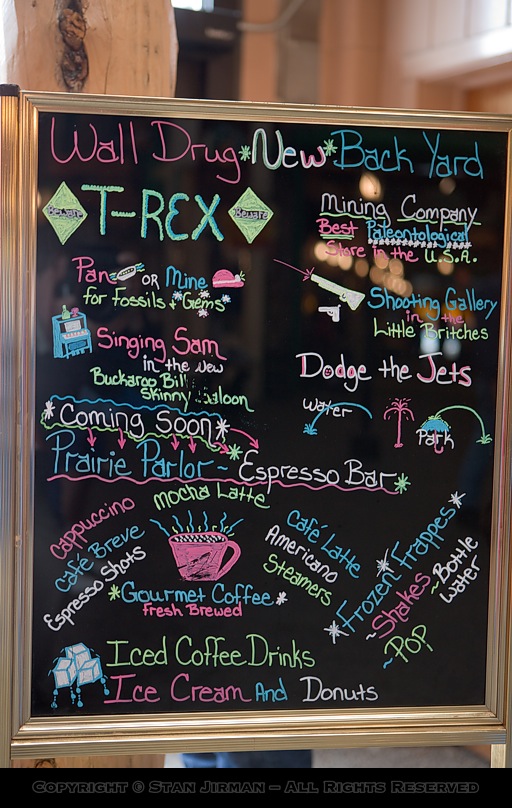 Wall Drug*New*Back Yard
Beware T-REX Beware
Mining Company
Best Paleontological
Store in the U.S.A.
Pan or Mine
for Fossils + Gems
Shooting Gallery
in the
Little Britches
Singing Sam
in the New
Buckaroo Bill
Skinny Saloon
Dodge the Jets
Water
Park
*Coming Soon*
Prairie Parlor~Espresso Bar*
Mocha Latte
Cappuccino
Café Breve
Espresso Shots
Café Latte
Americano
Steamers
*Frozen Frappes*
~Shakes~Bottle
Water
~POP
*Gourmet Coffee*
Fresh Brewed
Iced Coffee Drinks
Ice Cream And Donuts
Copyright © Stan Jirman – All Rights Reserved